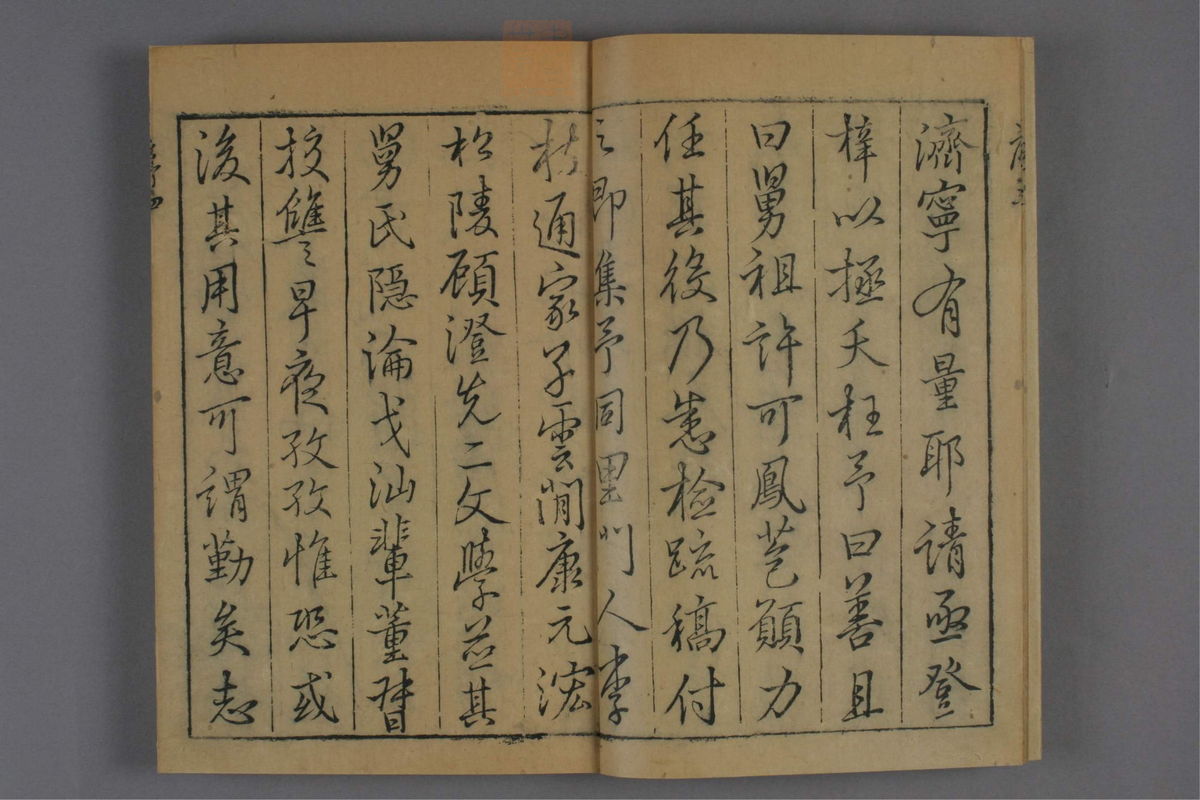 濟寧有量耶請亟登
梓以拯夭枉予曰善且
曰舅祖許可鳳苞願力
任其後乃悉檢疏稿付
之即集予同里門人李
枝通家子雲間康元浤
松陵顧澄先二文學並其
舅氏隱淪戈汕輩董督
挍讎早夜孜孜惟恐或
後其用意可謂勤矣志